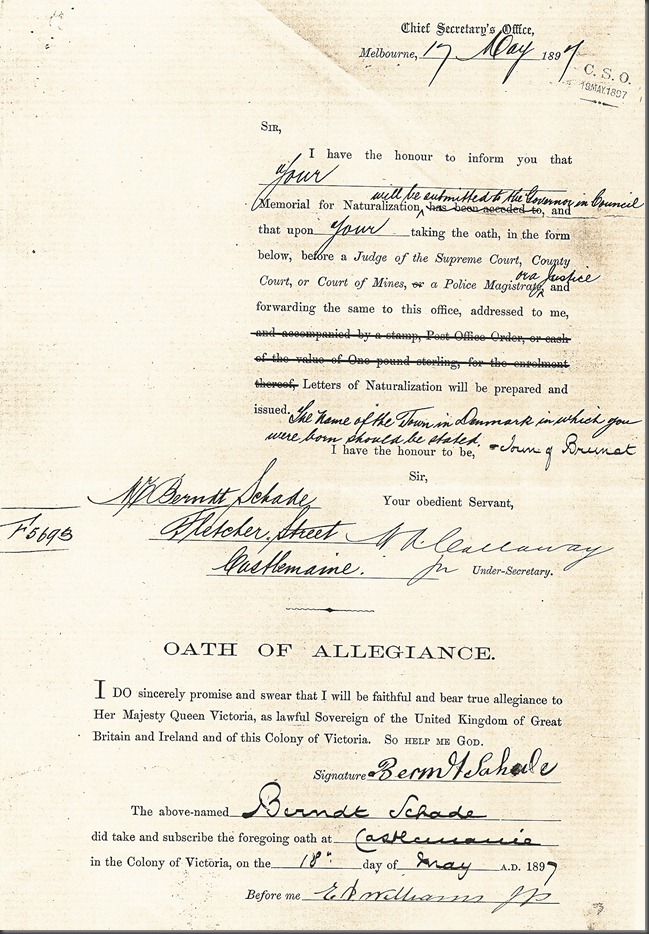 Chief Secretary's Office,
Melbourne, 17 May 1897
C. S. O.
19 MAY. 1897
SIR,
I have the honour to inform you that
your
will be submitted to the Governor in Council
Memorial for Naturalization, has been acceded to, and
that upon your taking the oath, in the form
below, before a Judge of the Supreme Court, County
or a Justice
Court, or Court of Mines, or a Police Magistrate, and
forwarding the same to this office, addressed to me,
and accompanied by a stamp, Post Office Order, or cash
of the value of One pound sterling, for the enrolment
thereof, Letters of Naturalization will be prepared and
issued. The name of the Town in Denmark in which you
were born should be stated.
I have the honour to be, Town of
Sir,
Mr Berndt Schade
Your obedient Servant,
F5693
Fletcher Street
Callaway
Castlemaine.
Under-Secretary.
OATH OF ALLEGIANCE.
I DO sincerely promise and swear that I will be faithful and bear true allegiance to
Her Majesty Queen Victoria, as lawful Sovereign of the United Kingdom of Great
Britain and Ireland and of this Colony of Victoria. SO HELP ME GOD.
Signature Berndt Schade
The above-named Berndt Schade
did take and subscribe the foregoing oath at Castlemaine
in the Colony of Victoria, on the 18th day of May A.D. 1897
Before me Williams JP